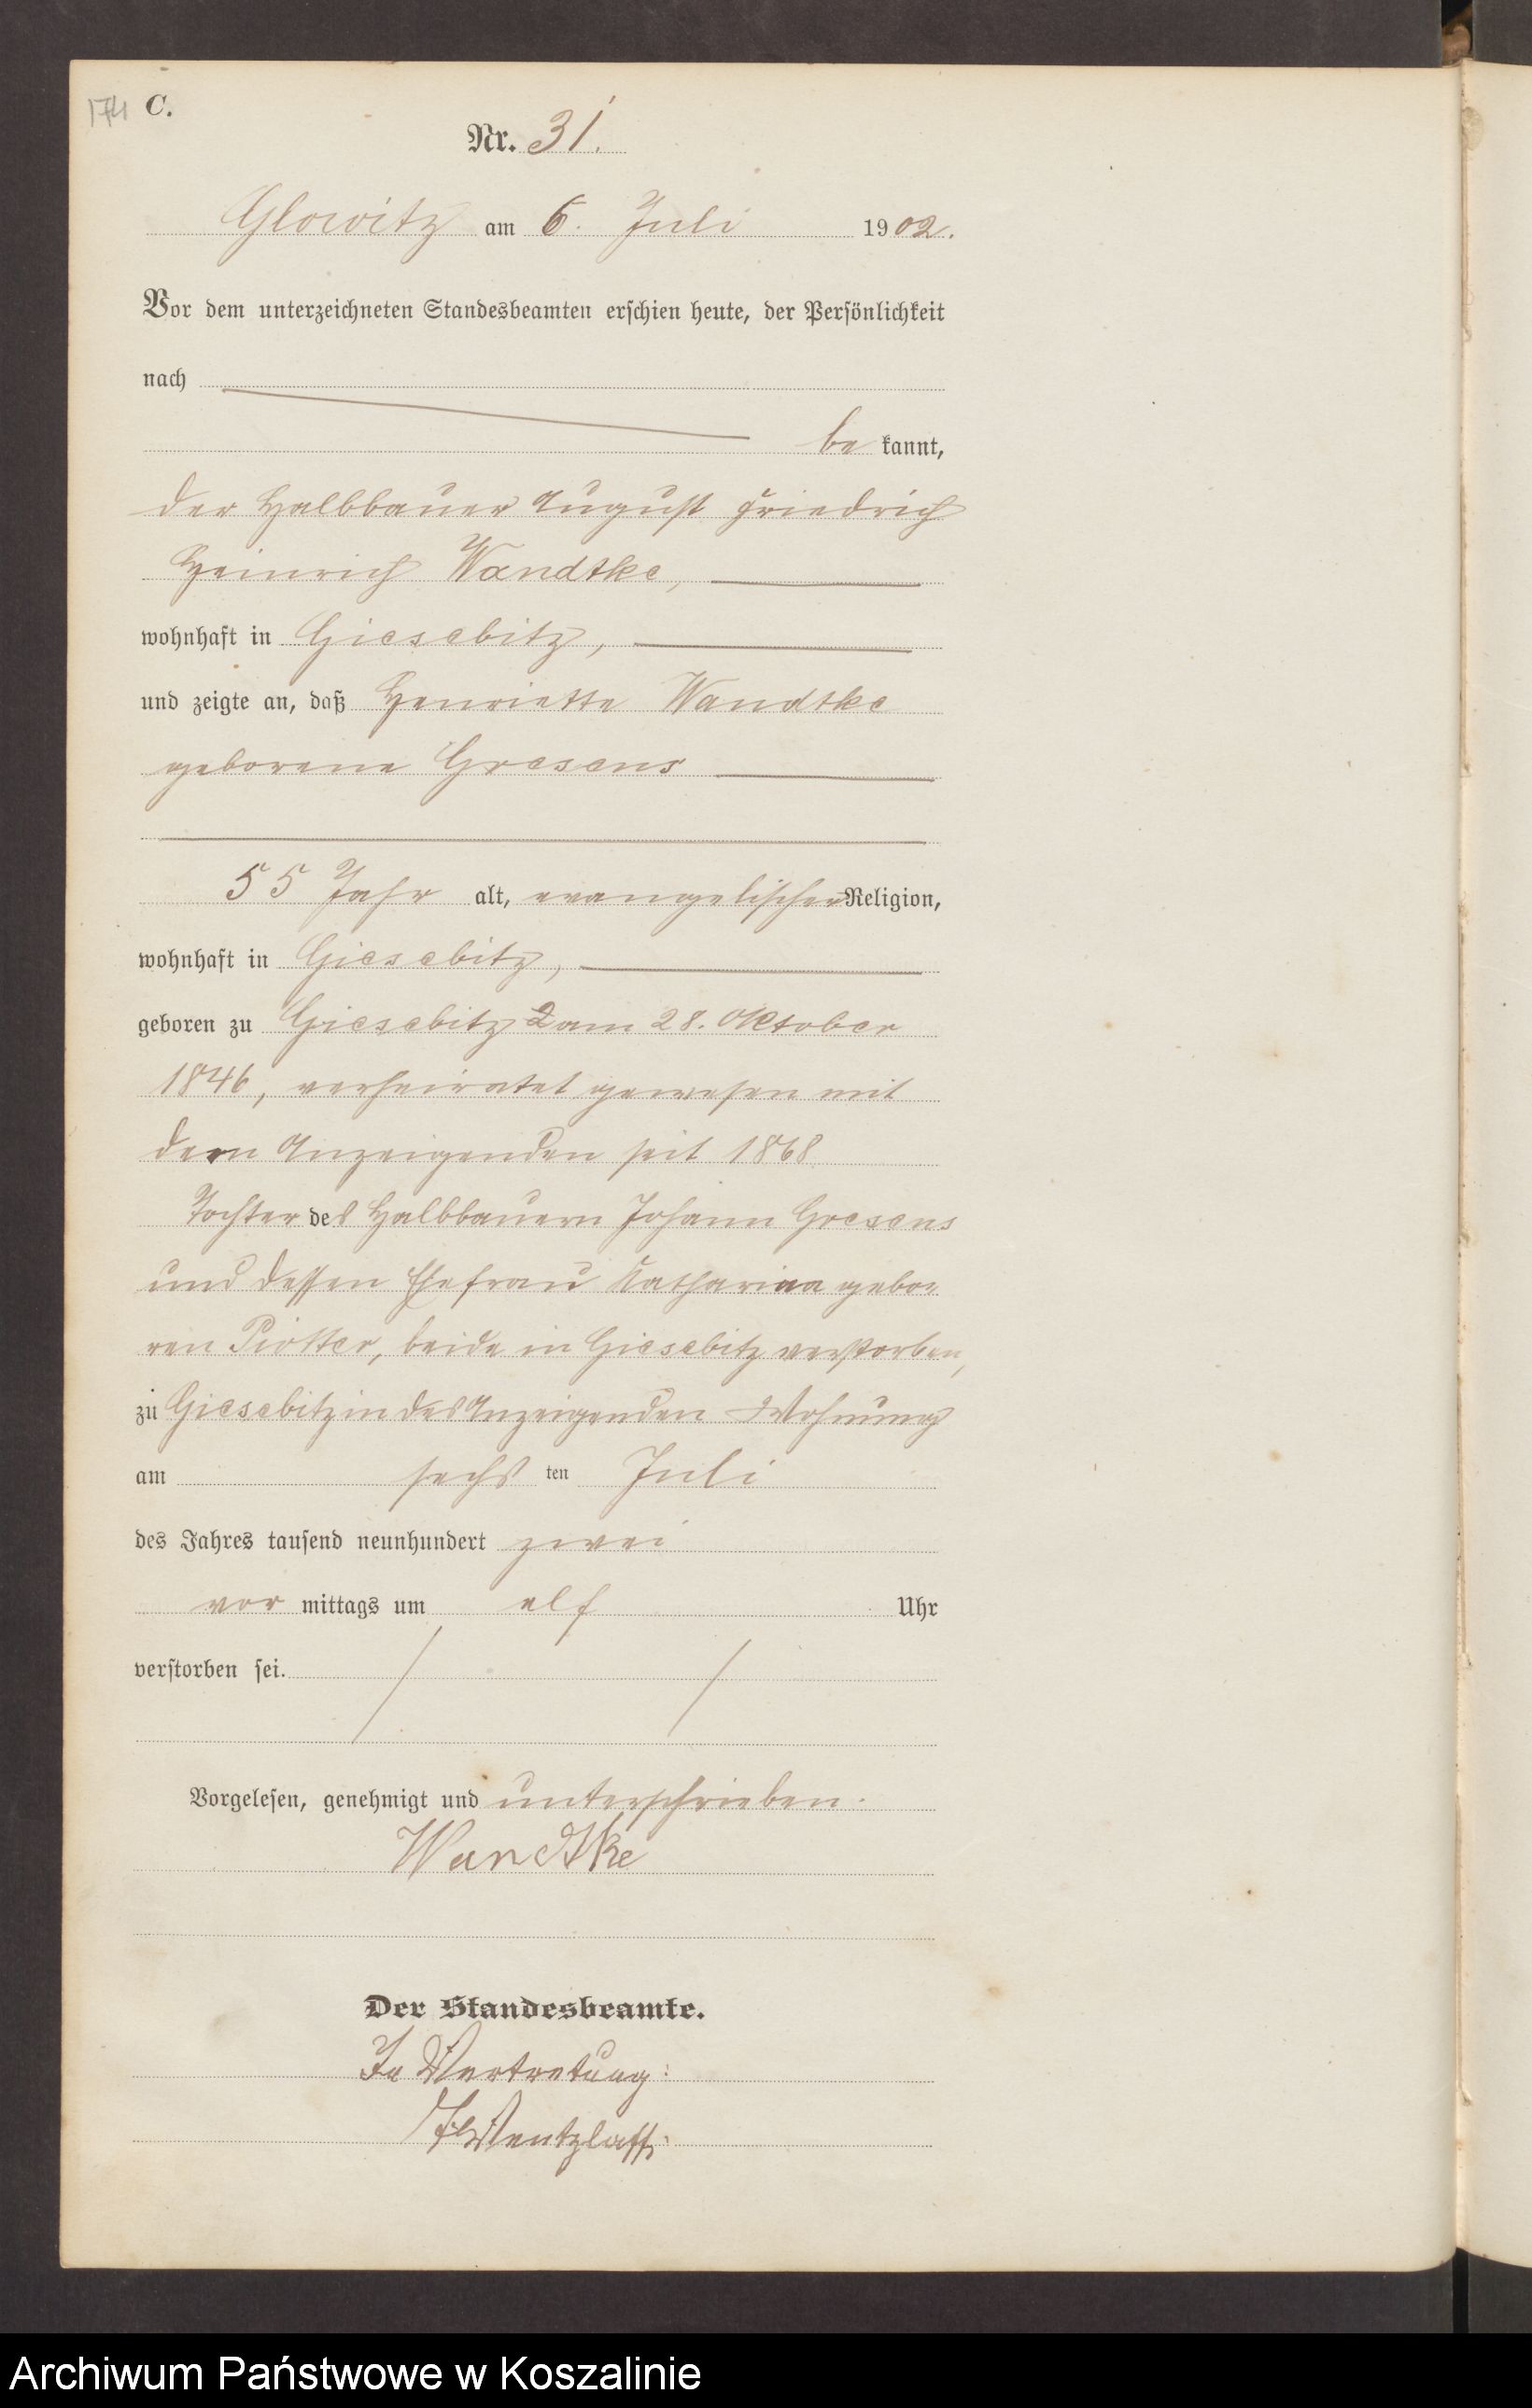 174 C.
Nr. 31.
Glowitz am 6. Juli 1902.
Vor dem unterzeichneten Standesbeamten erschien heute, der Persönlichkeit
nach
be kannt,
der Halbbauer August Friedrich
Heinrich Wandtke,
wohnhaft in Giesebitz,
und zeigte an, daß Henriette Wandtke
geborene Gresens
55 Jahr alt, evangelischer Religion,
wohnhaft in Giesebitz,
geboren zu Giesebitz am 28. Oktober
1846, verheiratet gewesen mit
dem Anzeigenden seit 1868
Tochter des Halbbauern Johann Gresens
und dessen Ehefrau Katharina gebo-
ren Piotter, beide in Giesebitz verstorben,
zu Giesebitz in des Anzeigenden Wohnung
am sechs ten Juli
des Jahres tausend neunhundert zwei
vor mittags um elf Uhr
verstorben sei.
Vorgelesen, genehmigt und unterschrieben.
Wandtke
Der Standesbeamte.
In Vertretung:
Wentzlaff.
Archiwum Państwowe w Koszalinie